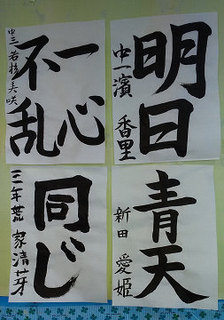 明日
中一 濱 香里
一心
不乱
中三 若杉
青天
新田 愛姫
同じ
三年 荒家 清芽